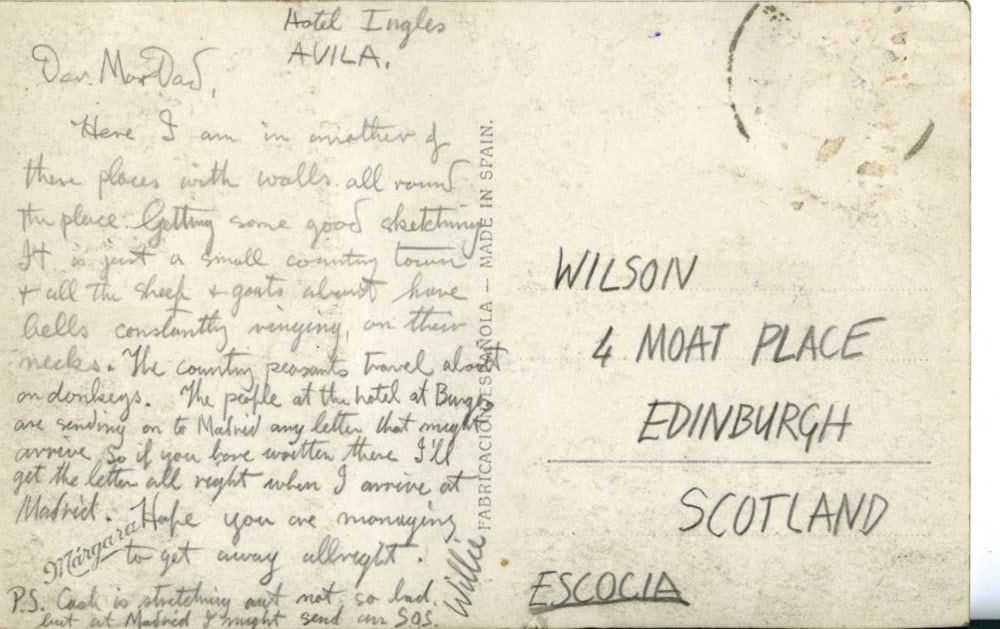 Hotel Ingles
AVILA.
Dear Mar Dad,
Here I am in another of
these places with walls all round
the place. Getting some good sketching
It is just a small country town
+ all the sheep + goats about have
bells constantly ringing, on their
necks. The country peasants travel about
on donkeys. The people at the hotel at Burgos
are sending on to Madrid any letter that might
arrive So if you have written there I'll
get the letter all right when I arrive at
Madrid. Hope you are managing
to get away allright.
Willie
P.S. Cash is stretching out not so bad,
but at Madrid I might send an SOS.
Márgara
FABRICACION ESPAÑOLA — MADE IN SPAIN.
WILSON
4 MOAT PLACE
EDINBURGH
SCOTLAND
ESCOCIA